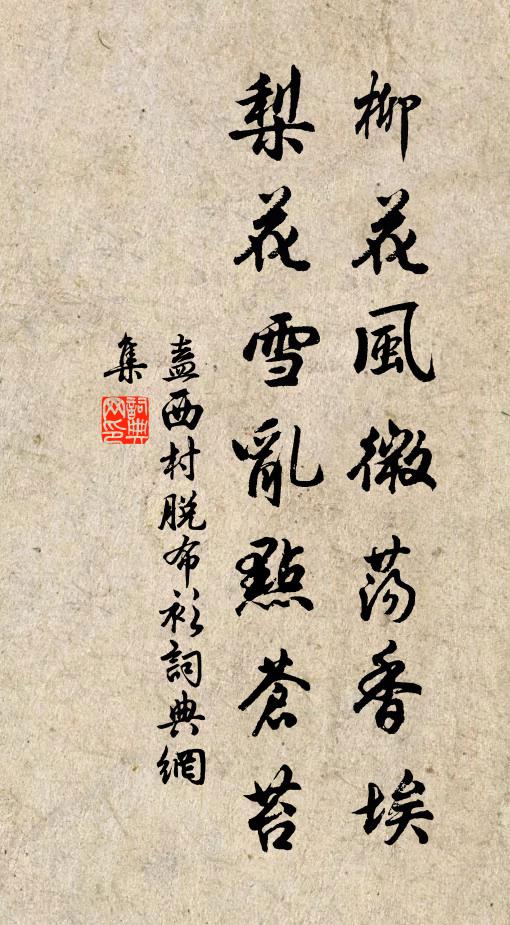 柳花風微蕩香埃
梨花雪亂點蒼苔
盍西村脱布衫詞典網
集
詞典
网印